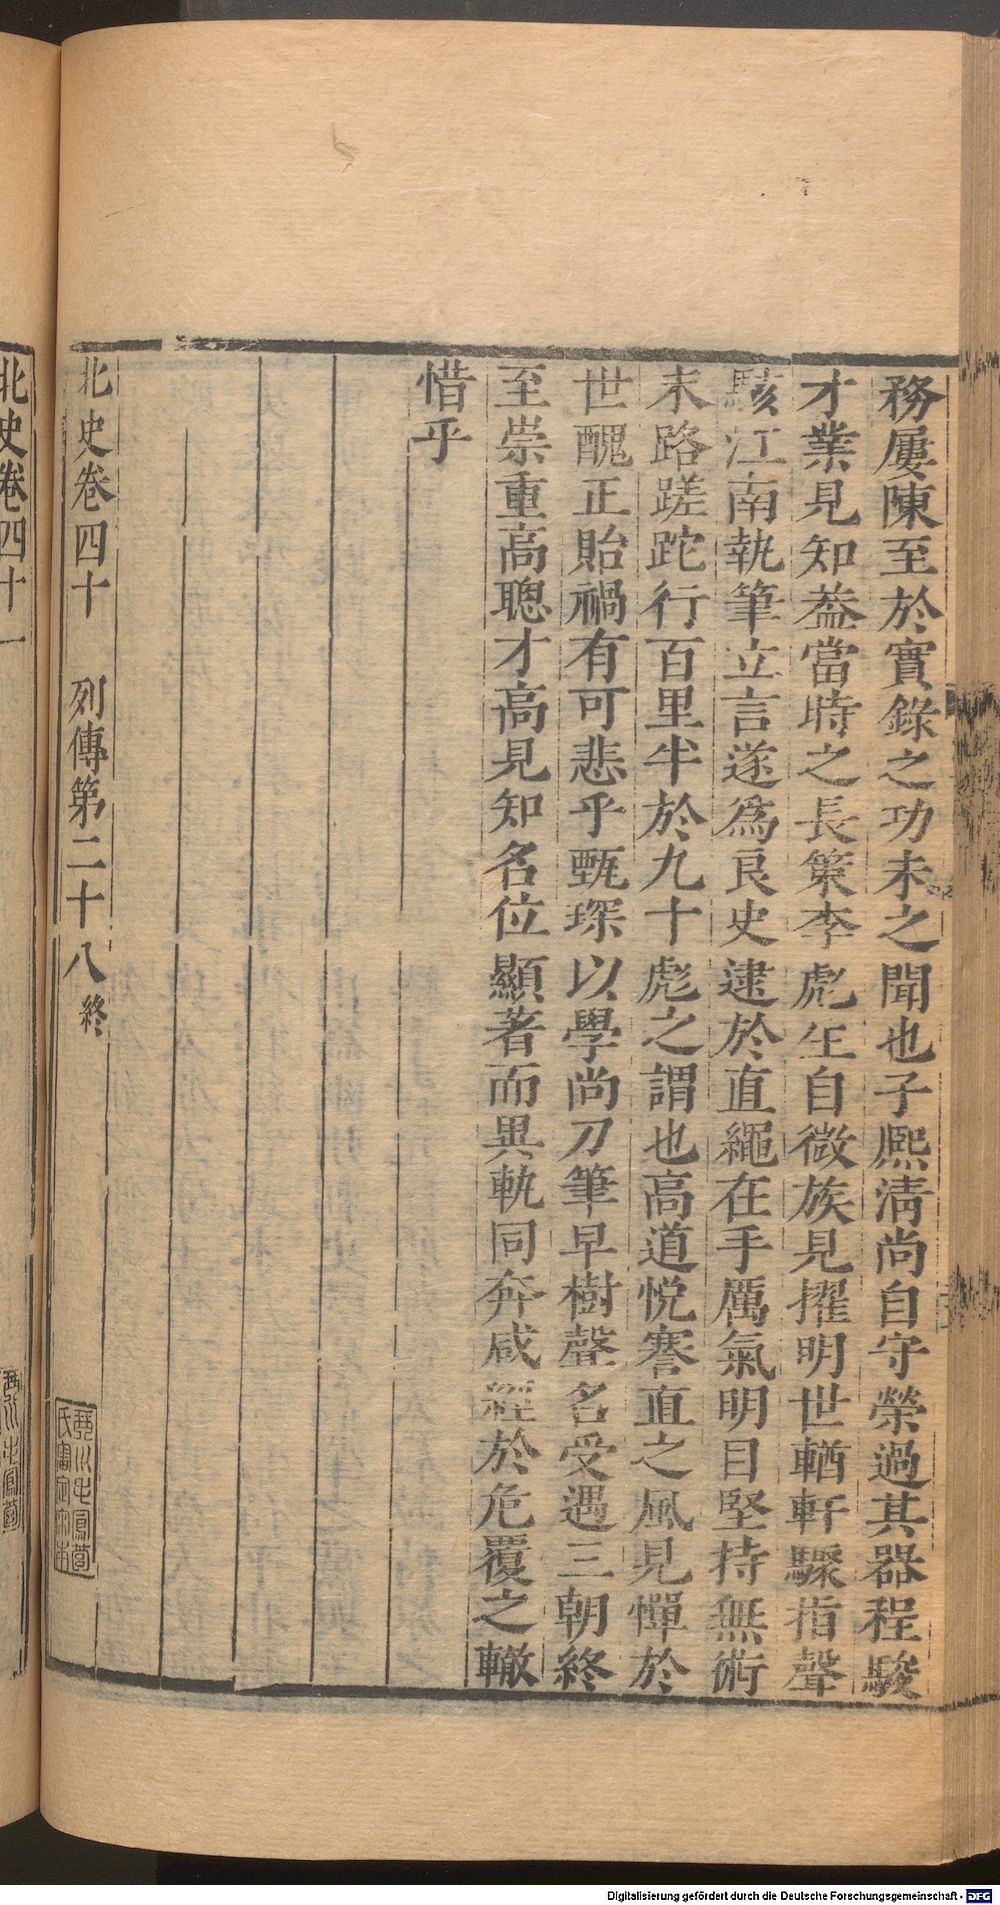 務屢陳至於實錄之功未之聞也子熙淸尚自守榮過其器程駿
才業見知葢當時之長策李彪生自微族見擢明世輶軒驟指聲
駭江南執筆立言遂爲良史逮於直繩在手厲氣明目堅持無術
末路蹉跎行百里半於九十彪之謂也高道悅謇直之風見憚於
世醜正貽禍有可悲乎甄琛以學尚刀筆早樹聲名受遇三朝終
至崇重高聰才高見知名位顯著而異軌同奔咸經於危覆之轍
惜乎
北史卷四十 列傳第二十八終
北史卷四十一
Digitalisierung gefördert durch die Deutsche Forschungsgemeinschaft - DFG